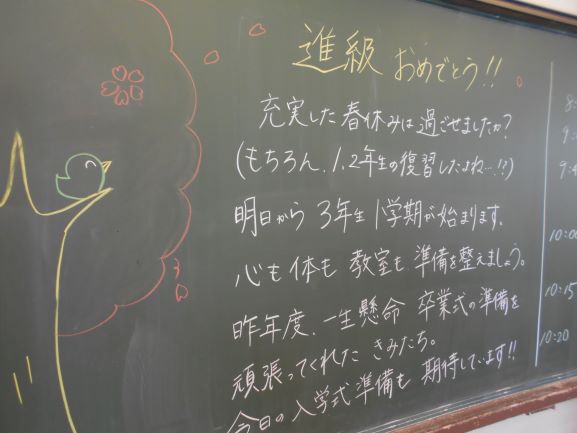 進級おめでとう!!
充実した春休みは過ごせましたか?
(もちろん、1、2年生の復習したよね…!!)
明日から3年生1学期が始まります。
心も体も教室も準備を整えましょう。
昨年度、一生懸命卒業式の準備を
頑張ってくれたきみたち。
今日の入学式準備も期待しています!!
10:00
10:15
10:20